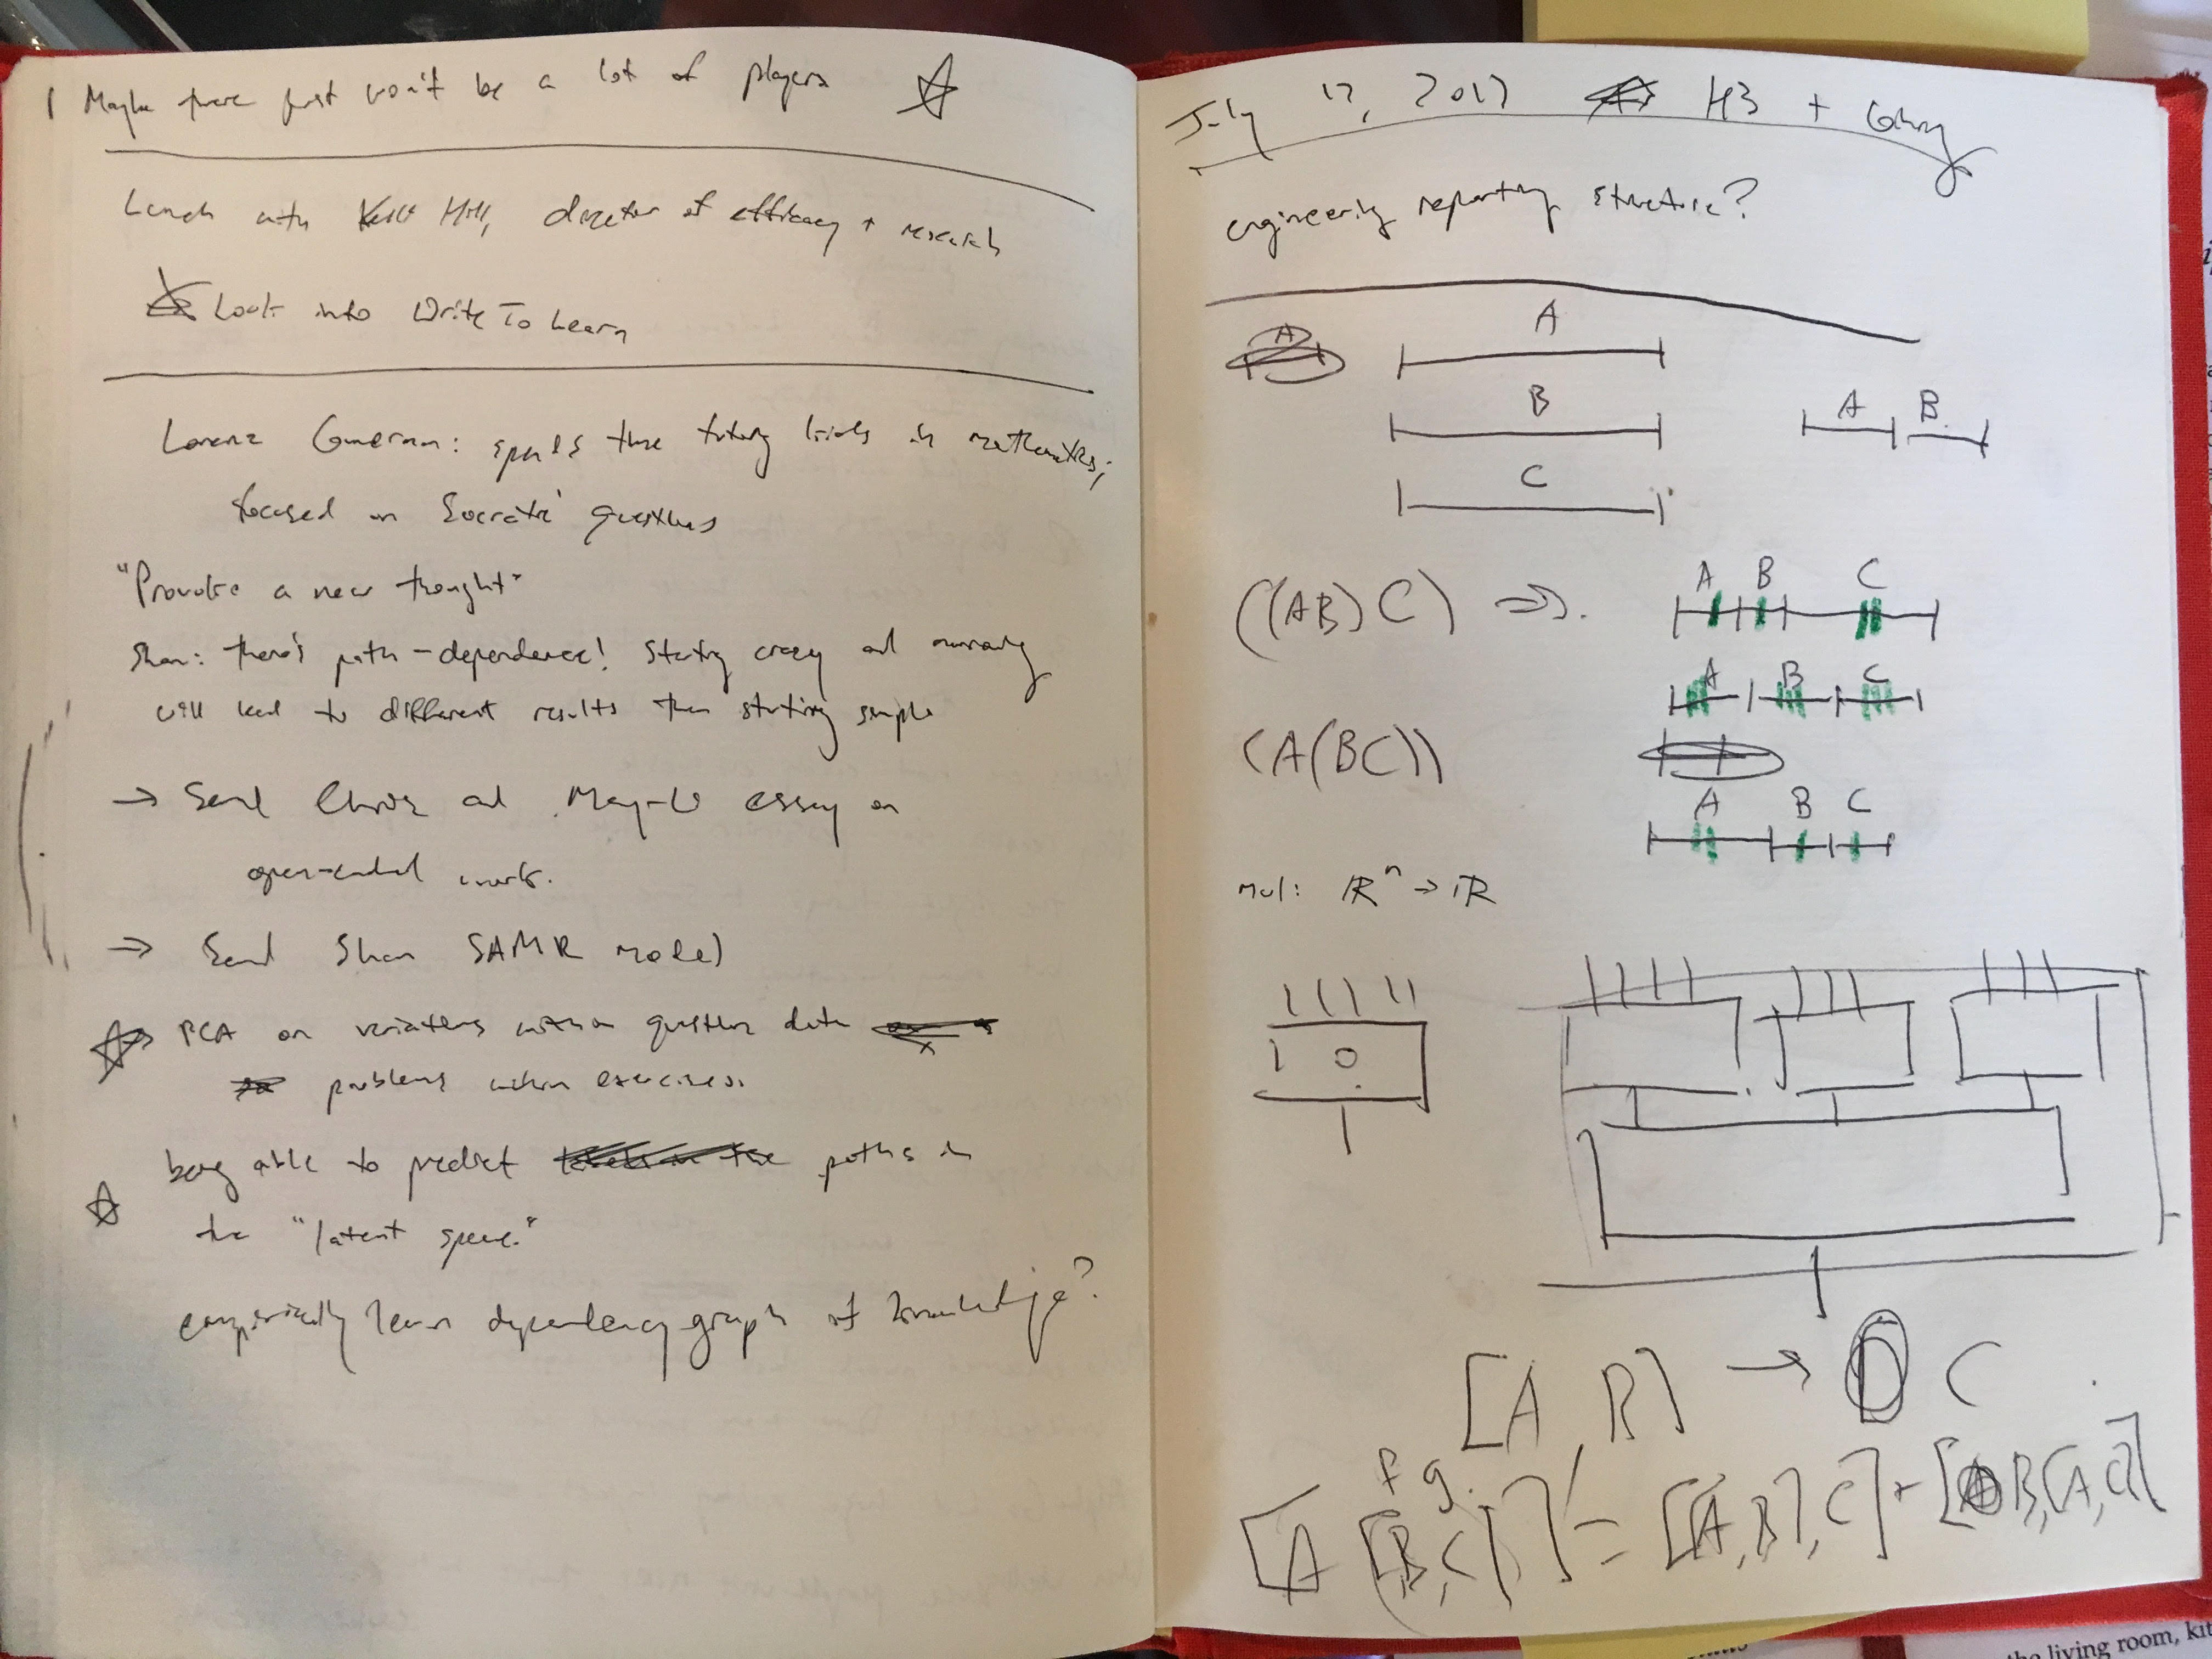 Maybe there just won't be a lot of players
Lunch with Hill, director of efficacy + research
Look into Write To Learn
Lorenz : three tutoring trials in mathematics;
focused on Socratic questions
"Provoke a new thought"
Shan: there's path-dependence! Starting crazy and
will lead to different results than starting simple
→ Send Chris and May-Li essay on
open-ended work.
→ Send Shan SAMR model
PCA on variations within question data
problems within exercises.
being able to predict paths in
the "latent space."
empirically learn dependency graph of knowledge?
July 17, 2017 H3 +
engineering reporting structure?
A
A
B
A B
C
((AB)C) ⇒
A B C
A B C
(A(BC))
A B C
mul: ℝⁿ → ℝ
[A, B] → C
f g
[A [B,C]] = [[A,B],C] + [B,[A,C]]
the living room, kit